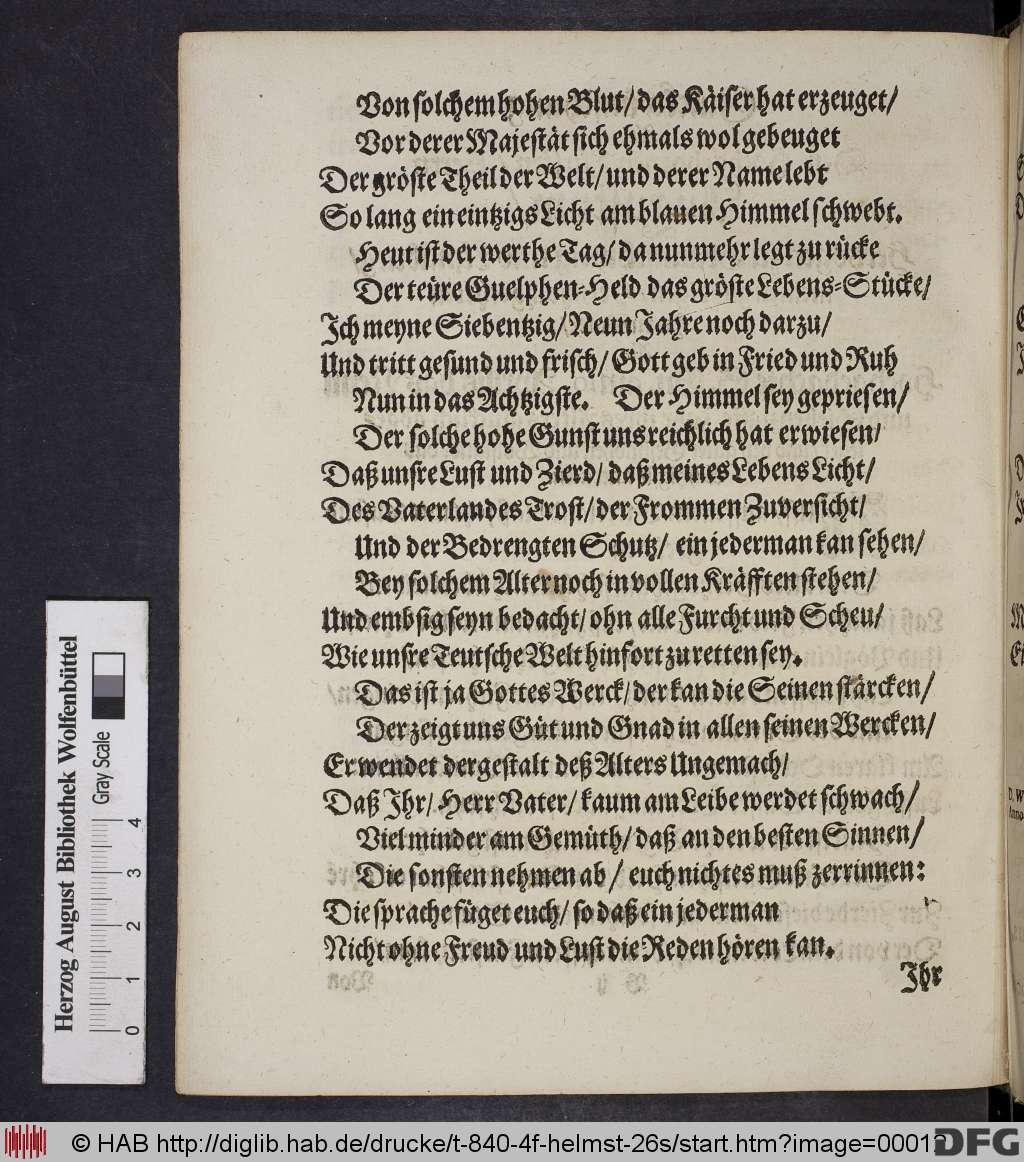 Von solchem hohen Blut/ das Käiser hat erzeuget/
Vor derer Majestät sich ehmals wol gebeuget
Der gröste Theil der Welt/ und derer Name lebt
So lang ein eintzigs Licht am blauen Himmel schwebt.
Heut ist der werthe Tag/ da nunmehr legt zu rücke
Der teüre Guelphen-Held das gröste Lebens-Stücke/
Ich meyne Siebentzig/ Neun Jahre noch darzu/
Und tritt gesund und frisch/ Gott geb in Fried und Ruh
Nun in das Achtzigste. Der Himmel sey gepriesen/
Der solche hohe Gunst uns reichlich hat erwiesen/
Daß unsre Lust und Zierd/ daß meines Lebens Licht/
Des Vaterlandes Trost/ der Frommen Zuversicht/
Und der Bedrengten Schutz/ ein jederman kan sehen/
Bey solchem Alter noch in vollen Kräfften stehen/
Und embsig seyn bedacht/ ohn alle Furcht und Scheu/
Wie unsre Teutsche Welt hinfort zu retten sey.
Das ist ja Gottes Werck/ der kan die Seinen stärcken/
Der zeigt uns Güt und Gnad in allen seinen Wercken/
Er wendet dergestalt deß Alters Ungemach/
Daß Ihr/ Herr Vater/ kaum am Leibe werdet schwach/
Viel minder am Gemüth/ daß an den besten Sinnen/
Die sonsten nehmen ab/ euch nichtes muß zerrinnen:
Die sprache füget euch/ so daß ein jederman
Nicht ohne Freud und Lust die Reden hören kan.
Ihr
Herzog August Bibliothek Wolfenbüttel
Gray Scale
0 1 2 3 4
© HAB http://diglib.hab.de/drucke/t-840-4f-helmst-26s/start.htm?image=00012
DFG